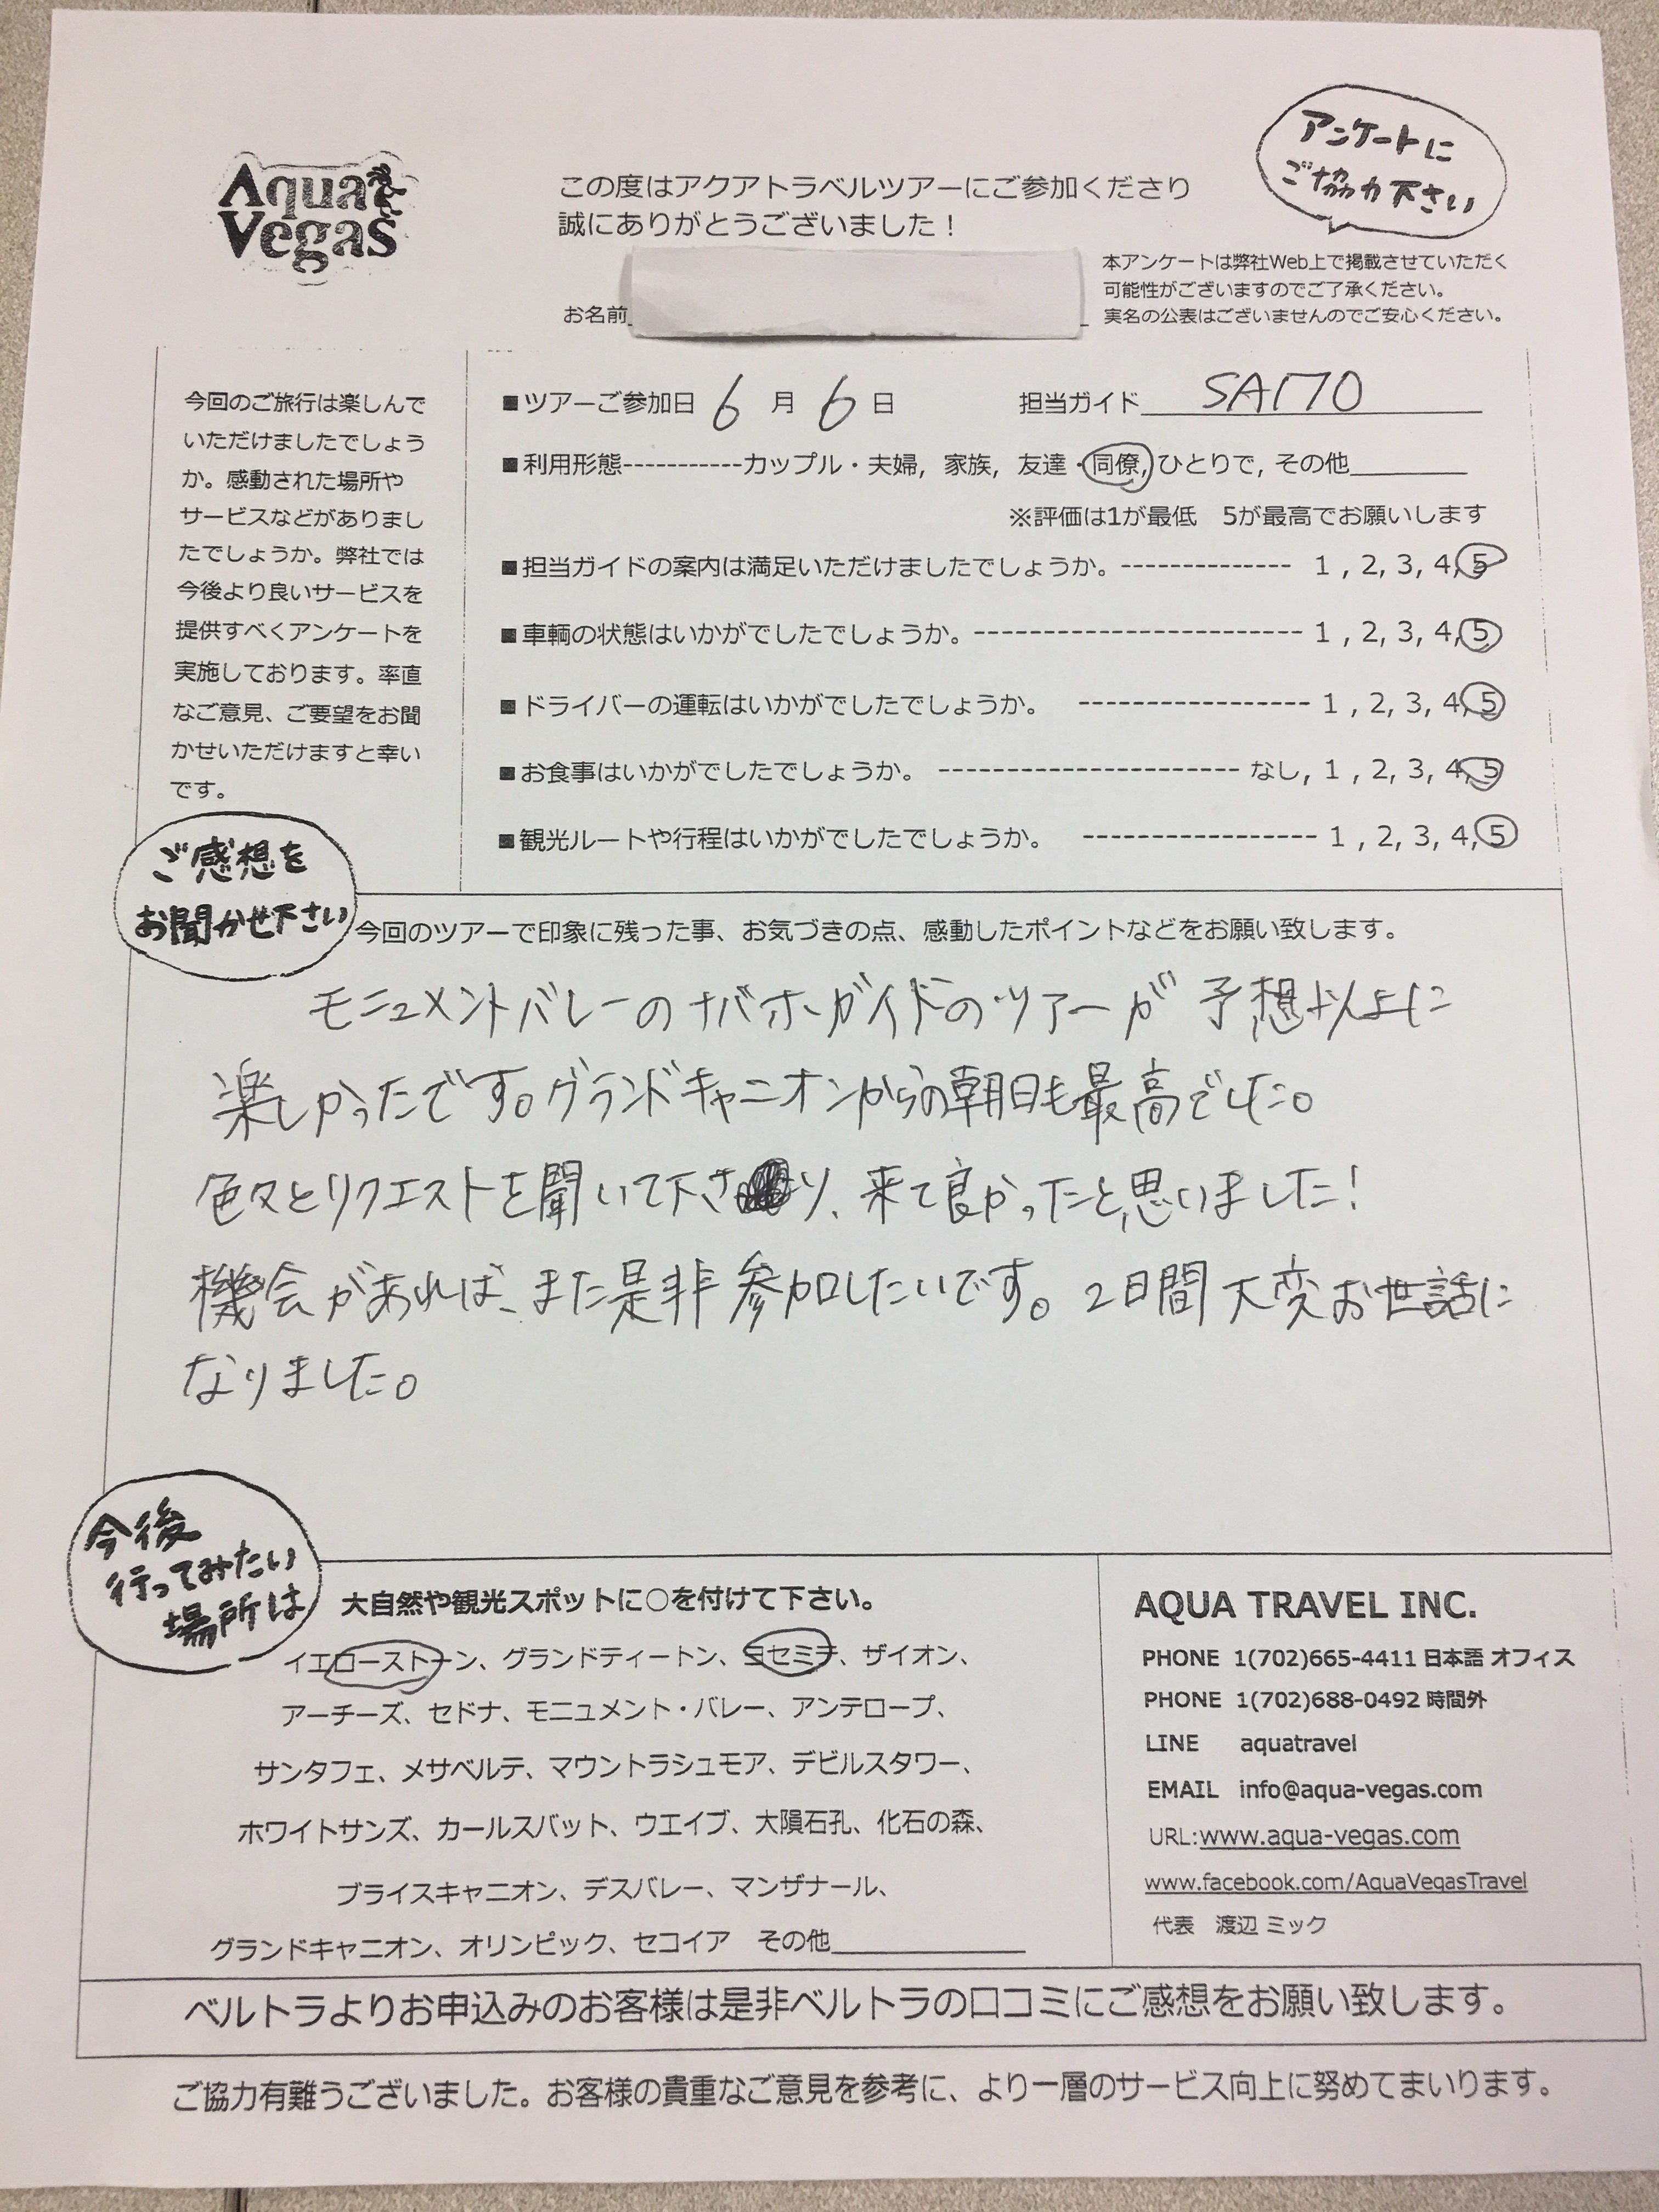 Aqua
Vegas
この度はアクアトラベルツアーにご参加くださり
誠にありがとうございました！
アンケートに
ご協力下さい
お名前
本アンケートは弊社Web上で掲載させていただく
可能性がございますのでご了承ください。
実名の公表はございませんのでご安心ください。
今回のご旅行は楽しんで
いただけましたでしょう
か。感動された場所や
サービスなどがありまし
たでしょうか。弊社では
今後より良いサービスを
提供すべくアンケートを
実施しております。率直
なご意見、ご要望をお聞
かせいただけますと幸い
です。
■ツアーご参加日 6 月 6 日 担当ガイド SAITO
■利用形態-----------カップル・夫婦, 家族, 友達・同僚, ひとりで, その他
※評価は1が最低 5が最高でお願いします
■担当ガイドの案内は満足いただけましたでしょうか。-------------- 1 , 2, 3, 4, 5
■車輌の状態はいかがでしたでしょうか。--------------------------- 1 , 2, 3, 4, 5
■ドライバーの運転はいかがでしたでしょうか。 ------------------- 1 , 2, 3, 4, 5
■お食事はいかがでしたでしょうか。 ------------------------- なし, 1 , 2, 3, 4, 5
■観光ルートや行程はいかがでしたでしょうか。 ------------------- 1 , 2, 3, 4, 5
ご感想を
お聞かせ下さい
今回のツアーで印象に残った事、お気づきの点、感動したポイントなどをお願い致します。
モニュメントバレーのナバホガイドのツアーが予想以上に
楽しかったです。グランドキャニオンからの朝日も最高でした。
色々とリクエストを聞いて下さり、来て良かったと思いました！
機会があれば、また是非参加したいです。2日間大変お世話に
なりました。
今後
行ってみたい
場所は
大自然や観光スポットに○を付けて下さい。
イエローストーン、グランドティートン、ヨセミテ、ザイオン、
アーチーズ、セドナ、モニュメント・バレー、アンテロープ、
サンタフェ、メサベルテ、マウントラシュモア、デビルスタワー、
ホワイトサンズ、カールスバット、ウエイブ、大隕石孔、化石の森、
ブライスキャニオン、デスバレー、マンザナール、
グランドキャニオン、オリンピック、セコイア その他
AQUA TRAVEL INC.
PHONE 1(702)665-4411 日本語 オフィス
PHONE 1(702)688-0492 時間外
LINE aquatravel
EMAIL info@aqua-vegas.com
URL:www.aqua-vegas.com
www.facebook.com/AquaVegasTravel
代表 渡辺 ミック
ベルトラよりお申込みのお客様は是非ベルトラの口コミにご感想をお願い致します。
ご協力有難うございました。お客様の貴重なご意見を参考に、より一層のサービス向上に努めてまいります。